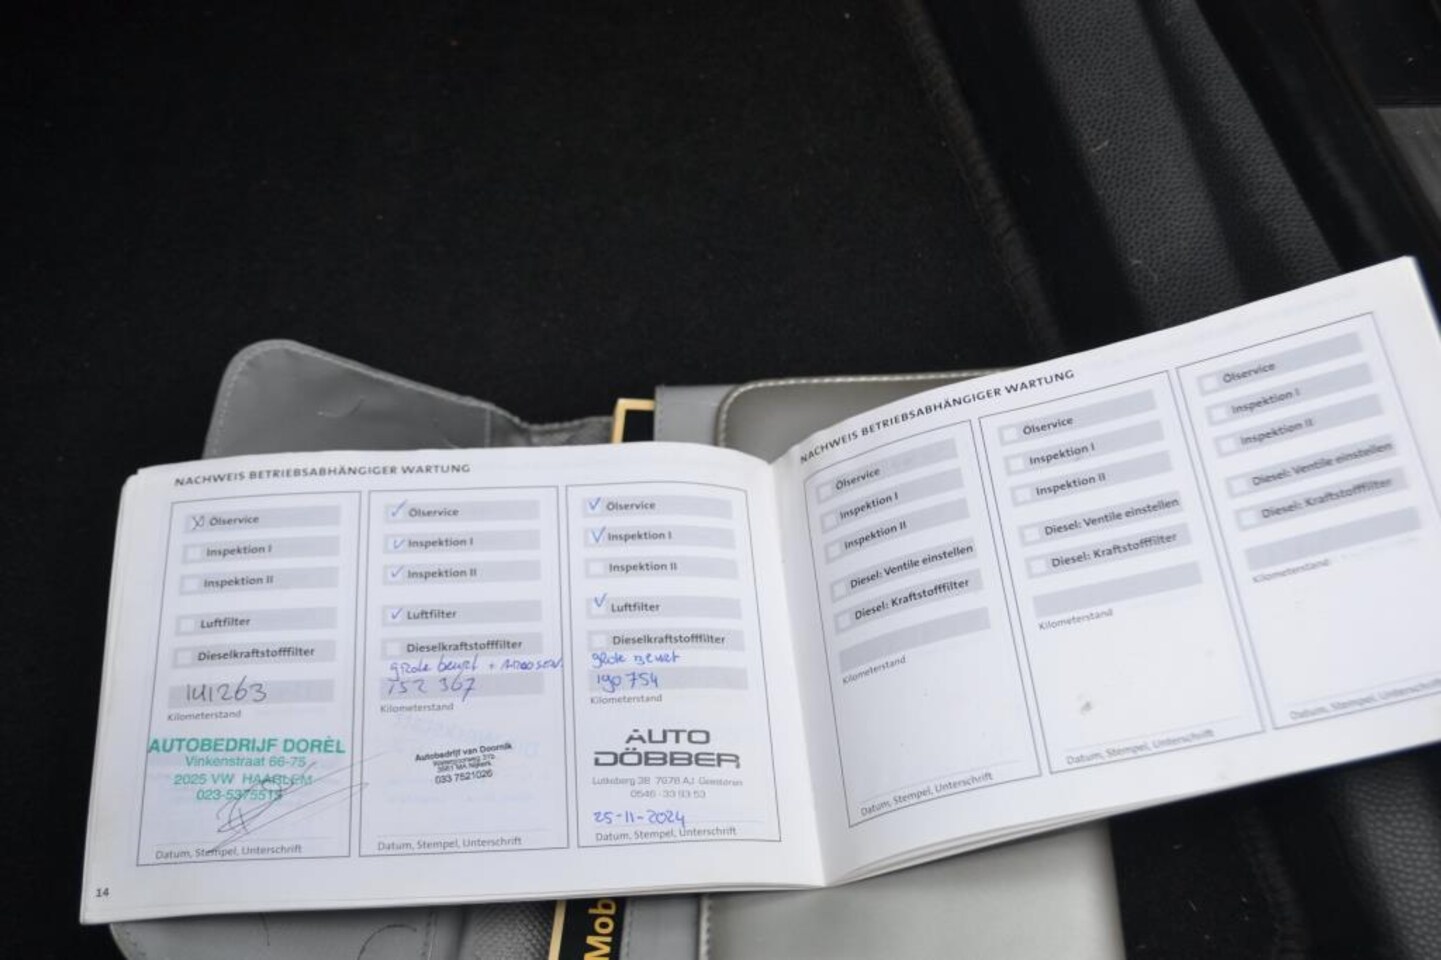 NACHWEIS BETRIEBSABHÄNGIGER WARTUNG
Ölservice
Inspektion I
Inspektion II
Luftfilter
Dieselkraftstofffilter
141263
Kilometerstand
AUTOBEDRIJF DORÈL
Vinkenstraat 66-75
2025 VW HAARLEM
023-5375515
Datum, Stempel, Unterschrift
14
Ölservice
Inspektion I
Inspektion II
Luftfilter
Dieselkraftstofffilter
grote beurt +
152 367
Kilometerstand
Autobedrijf van Doornik
3861 MA Nijkerk
033 7521026
Datum, Stempel, Unterschrift
Ölservice
Inspektion I
Inspektion II
Luftfilter
Dieselkraftstofffilter
grote beurt
190 754
Kilometerstand
AUTO
DÖBBER
Lutteberg 38 7678 AJ Geesteren
0546 - 33 93 53
25-11-2024
Datum, Stempel, Unterschrift
NACHWEIS BETRIEBSABHÄNGIGER WARTUNG
Ölservice
Inspektion I
Inspektion II
Diesel: Ventile einstellen
Diesel: Kraftstofffilter
Kilometerstand
Datum, Stempel, Unterschrift
Ölservice
Inspektion I
Inspektion II
Diesel: Ventile einstellen
Diesel: Kraftstofffilter
Kilometerstand
Datum, Stempel, Unterschrift
Ölservice
Inspektion I
Inspektion II
Diesel: Ventile einstellen
Diesel: Kraftstofffilter
Kilometerstand
Datum, Stempel, Unterschrift
Mob